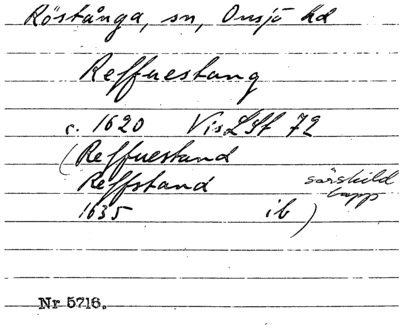 Röstånga, sn, Onsjö hd
Reffuestang
c. 1620 VisLSt 72
(Reffuestand
Reffstand särskild
lapp
1635 ib)
Nr 5716.